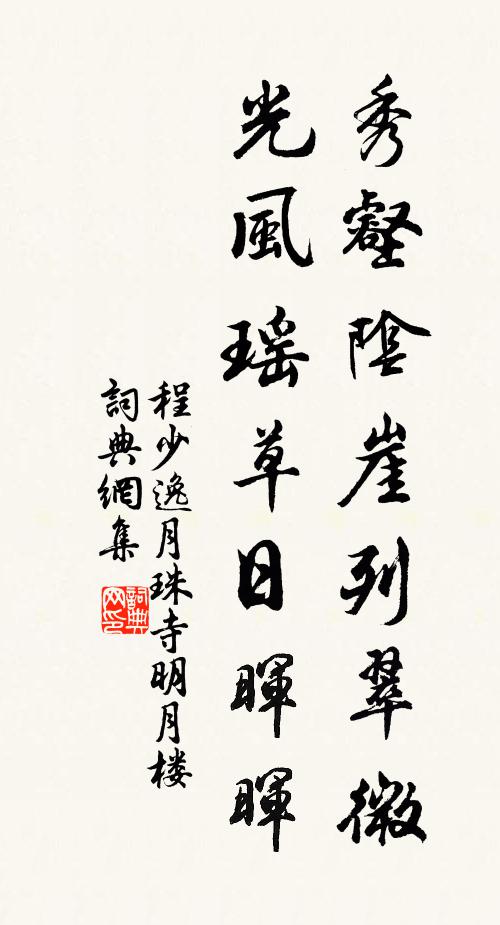 秀壑陰崖列翠微
光風瑶草日暉暉
程少逸月珠寺明月楼
詞典網集
詞典网印